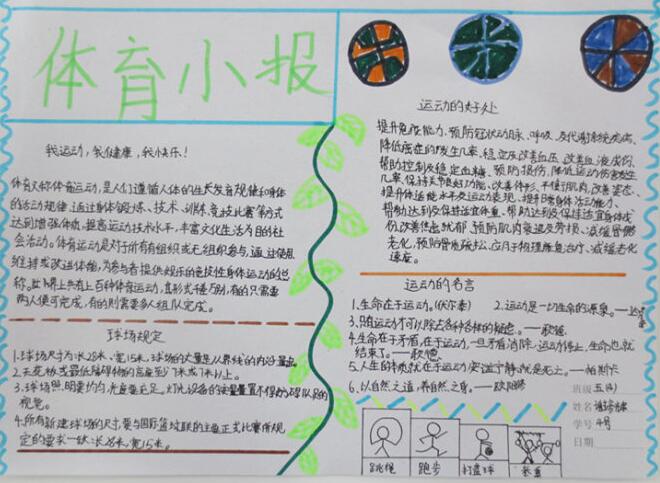 体育小报
我运动，我健康，我快乐！
体育又称体育运动，是人们遵循人体的生长发育规律和身体
的活动规律，通过身体锻炼、技术、训练、竞技比赛等方式
达到增强体质，提高运动技术水平，丰富文化生活为目的社
会活动。体育运动是对于所有有组织或无组织参与，通过使用
维持或改进体能，为参与者提供娱乐的竞技性身体运动的总
称。世界上共有上百种体育运动，其形式千差万别，有的只需要
两人便可完成，有的则需要多人组队完成。
球场规定
1.球场尺寸为：长28米，宽15米，球场的丈量是从界线的内沿量起。
2.天花板或最低障碍物的高度至少7米或7米以上。
3.球场照明要均匀，光度要充足。灯光设备的安置不得妨碍队员的
视觉。
4.所有新建球场的尺寸，要与国际篮球联的主要正式比赛所规
定的要求一致：长28米，宽15米。
运动的好处
提升免疫能力、预防冠状动脉、呼吸、及代谢系统疾病、
降低癌症的发生几率，稳定及改善血压，改善血液
帮助控制及稳定血糖，预防损伤，降低运动伤害发生
几率，保持关节良好功能、改善体形，平衡肌肉，改善姿态、
提升体适能水平及运动表现，提升日常身体活动能力、
帮助达到及保持适宜体重，帮助达到及保持适宜身体成
份，改善焦虑忧郁，预防肌肉萎缩及劳损、减缓骨骼
老化，预防骨质疏松，应用于物理康复治疗、减缓老化
速度。
运动的名言
1.生命在于运动。（伏尔泰）
2.运动是一切生命的源泉。
3.只有运动才可以除去各种各样的疑虑。——歌德
4.生命在于矛盾，在于运动，一旦矛盾消除，运动停止，生命也就
结束了。——歌德
5.人生的本质就在于运动，安谧宁静就是死亡。——帕斯卡
6.以自然之道，养自然之身。——欧阳修
班级 五（1）
姓名
学号 4号
日期
跳绳 跑步 打篮球 举重